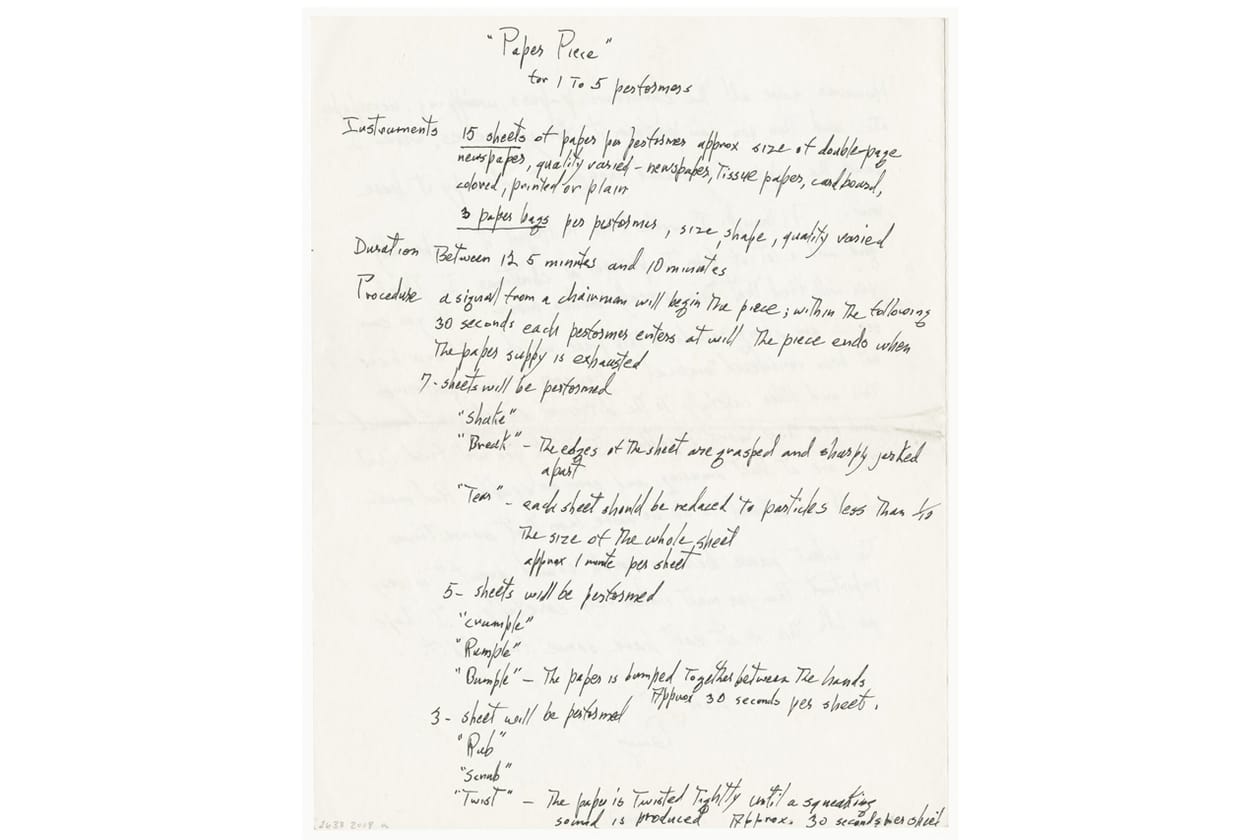 "Paper Piece"
for 1 To 5 performers
Instruments 15 sheets of paper per performer approx size of double-page
newspaper, quality varied - newspaper, Tissue paper, cardboard,
colored, printed or plain
3 paper bags per performer, size, shape, quality varied
Duration Between 12.5 minutes and 10 minutes
Procedure a signal from a chairman will begin The piece; within The following
30 seconds each performer enters at will The piece ends when
The paper supply is exhausted
7 - sheets will be performed
"shake"
"Break" - The edges of The sheet are grasped and sharply jerked
apart
"Tear" - each sheet should be reduced To particles less Than 1/10
The size of The whole sheet
approx 1 minute per sheet
5 - sheets will be performed
"crumple"
"Rumple"
"Bumple" - The paper is bumped Together between The hands
Approx 30 seconds per sheet.
3 - sheet will be performed
"Rub"
"Scrub"
"Twist" - The paper is Twisted Tightly until a squeaking
sound is produced Approx. 30 seconds per sheet
2638.2008